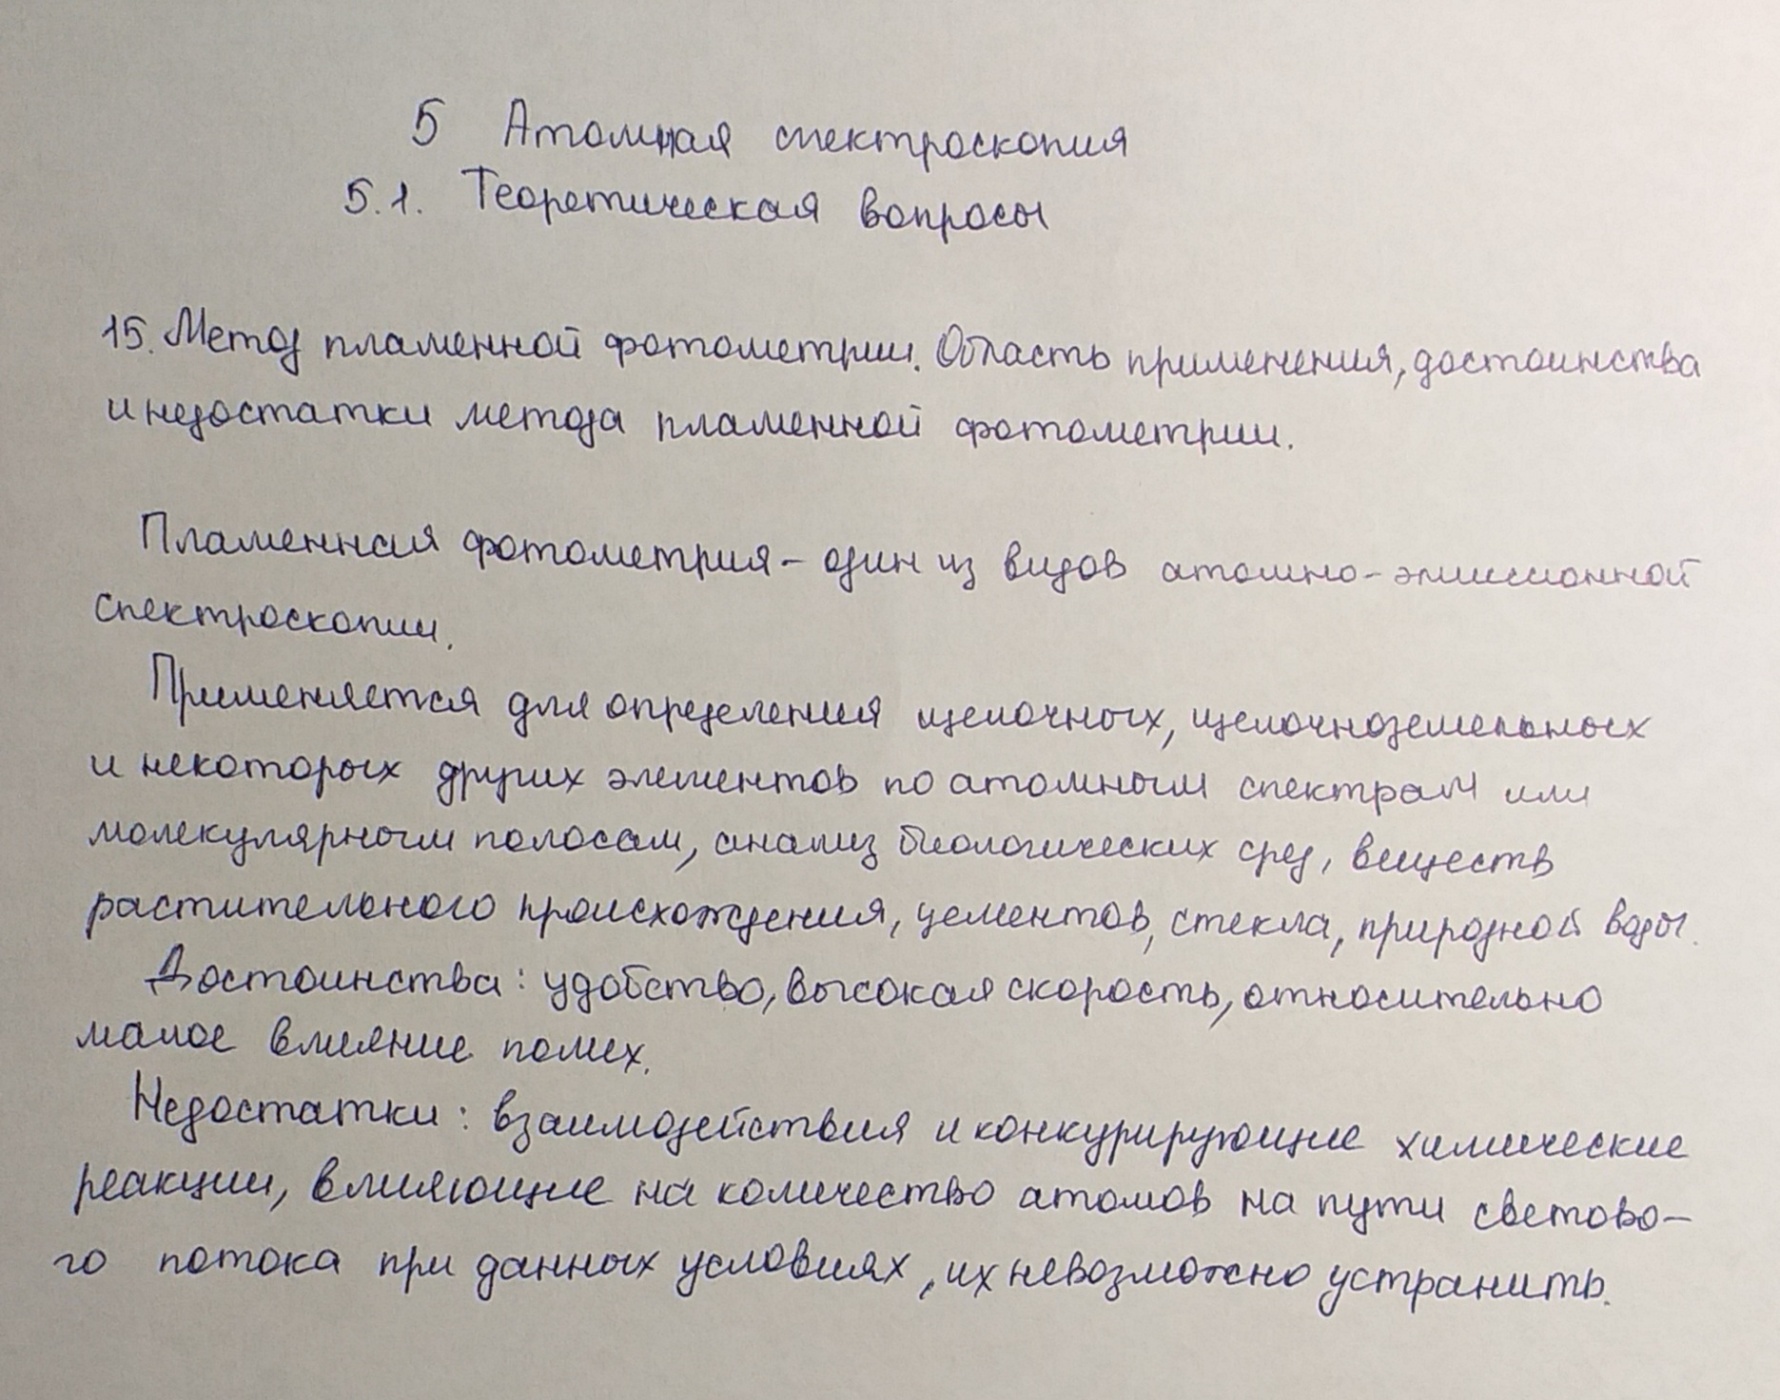 5 Атомная спектроскопия
5.1. Теоретическая вопросы
15. Метод пламенной фотометрии. Область применения, достоинства
и недостатки метода пламенной фотометрии.
Пламенная фотометрия - один из видов атомно-эмиссионной
спектроскопии.
Применяется для определения щелочных, щелочноземельных
и некоторых других элементов по атомным спектрам или
молекулярным полосам, анализ биологических сред, веществ
растительного происхождения, цементов, стекла, природной воды.
Достоинства: удобство, высокая скорость, относительно
малое влияние помех.
Недостатки: взаимодействия и конкурирующие химические
реакции, влияющие на количество атомов на пути светово-
го потока при данных условиях, их невозможно устранить.